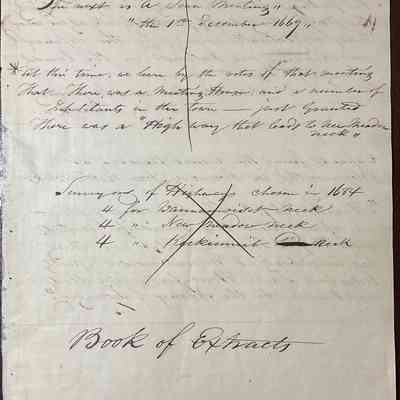 The next is A Town Meeting "
"the 1st December 1669"
* At this time, we learn by the votes of that meeting
That there was a Meeting House and a number of
Inhabitants in the town — just Granted
There was a "High way that leads to New Meadow
neck"
Surveyors of Highways chosen in 1684
4 for neck
4 " New Meadow neck
4 " neck
Book of Extracts